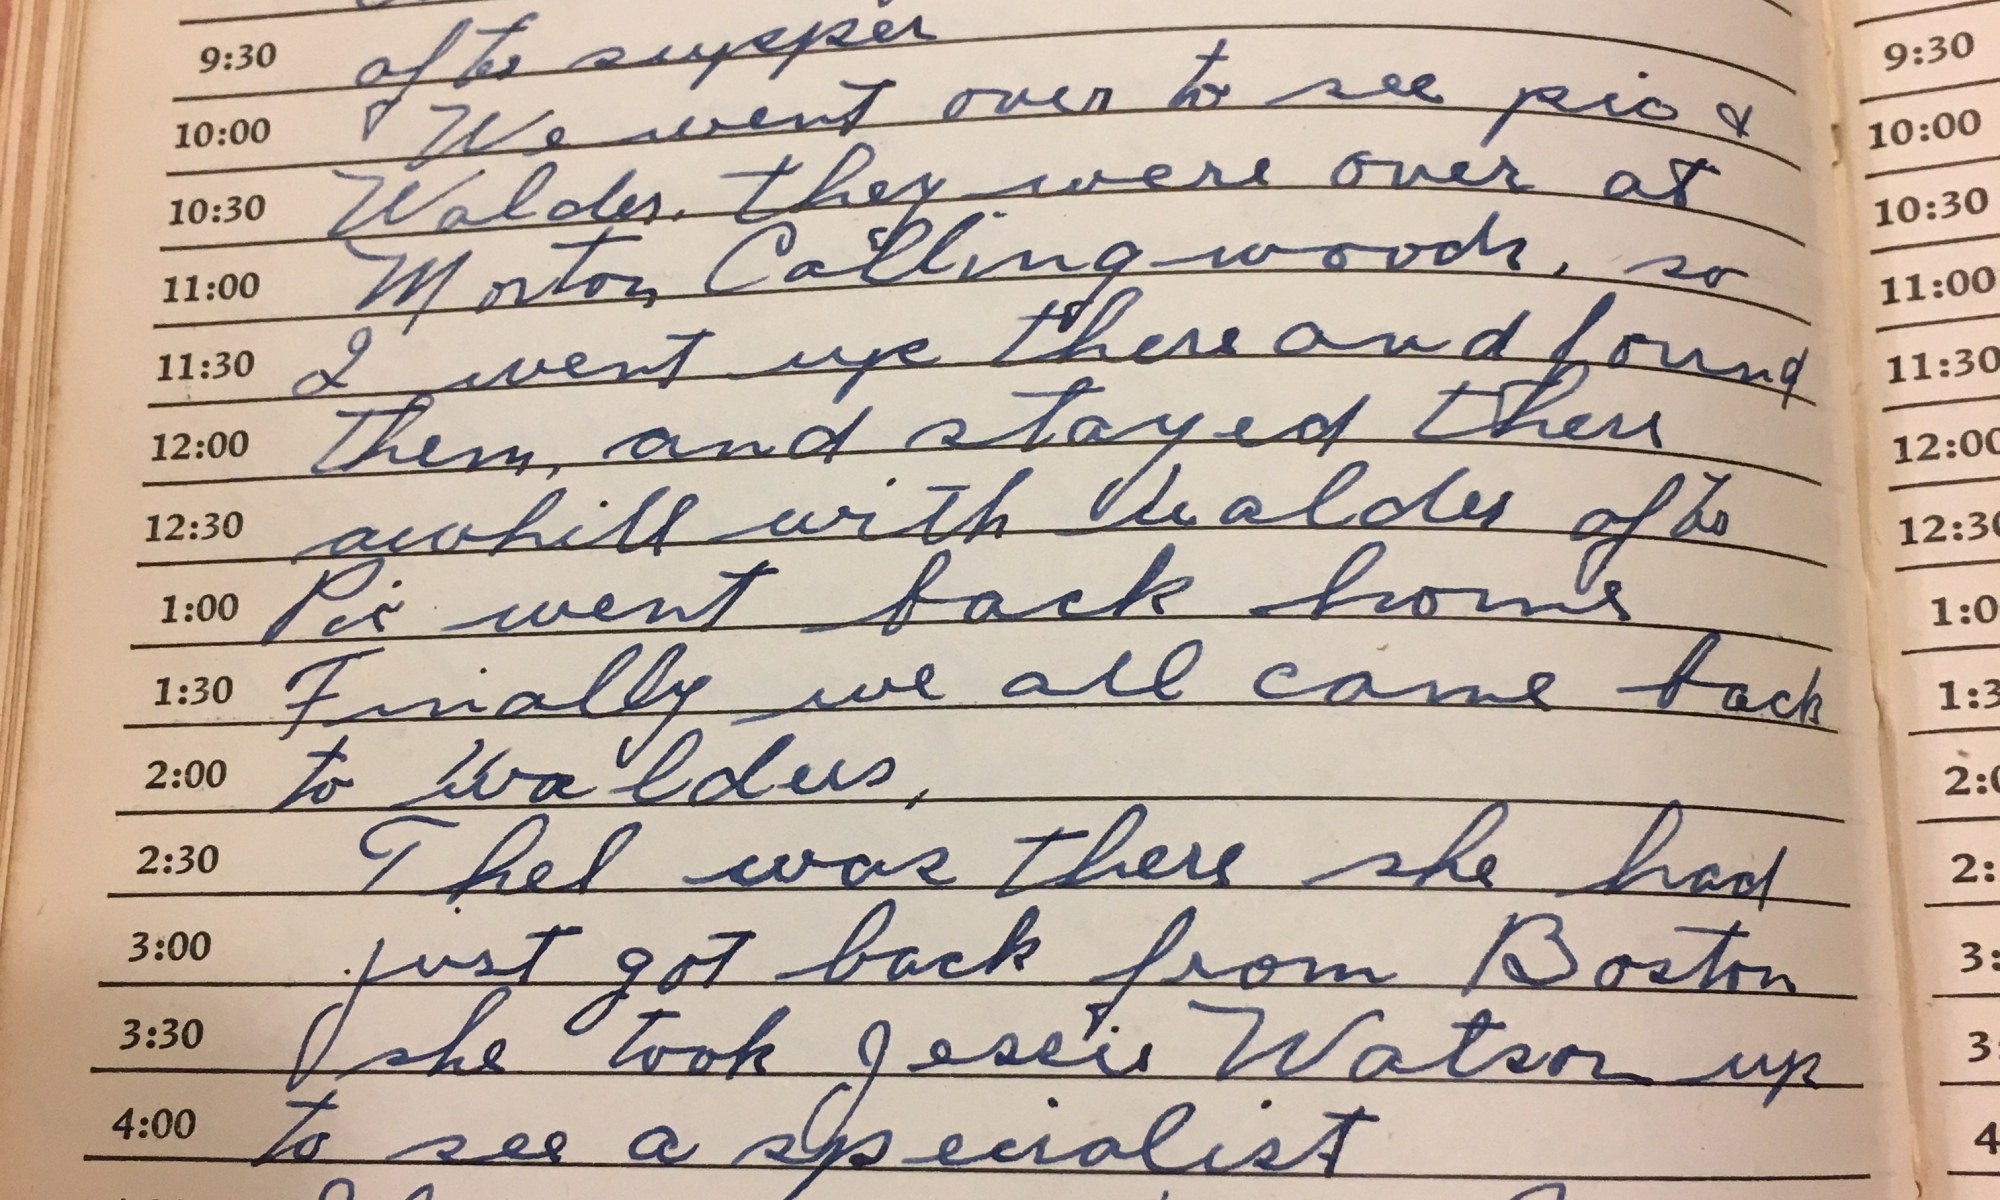 9:30 after supper
10:00 We went over to see pic &
10:30 Walder. they were over at
11:00 Morton Collingwoods, so
11:30 I went up there and found
12:00 them, and stayed there
12:30 awhill with Walder after
1:00 Pic went back home
1:30 Finally we all came back
2:00 to Walders,
2:30 Thel was there she had
3:00 just got back from Boston
3:30 she took Jessie Watson up
4:00 to see a specialist
9:30
10:00
10:30
11:00
11:30
12:00
12:30
1:0
1:3
2:0
2:
3:
3:
4